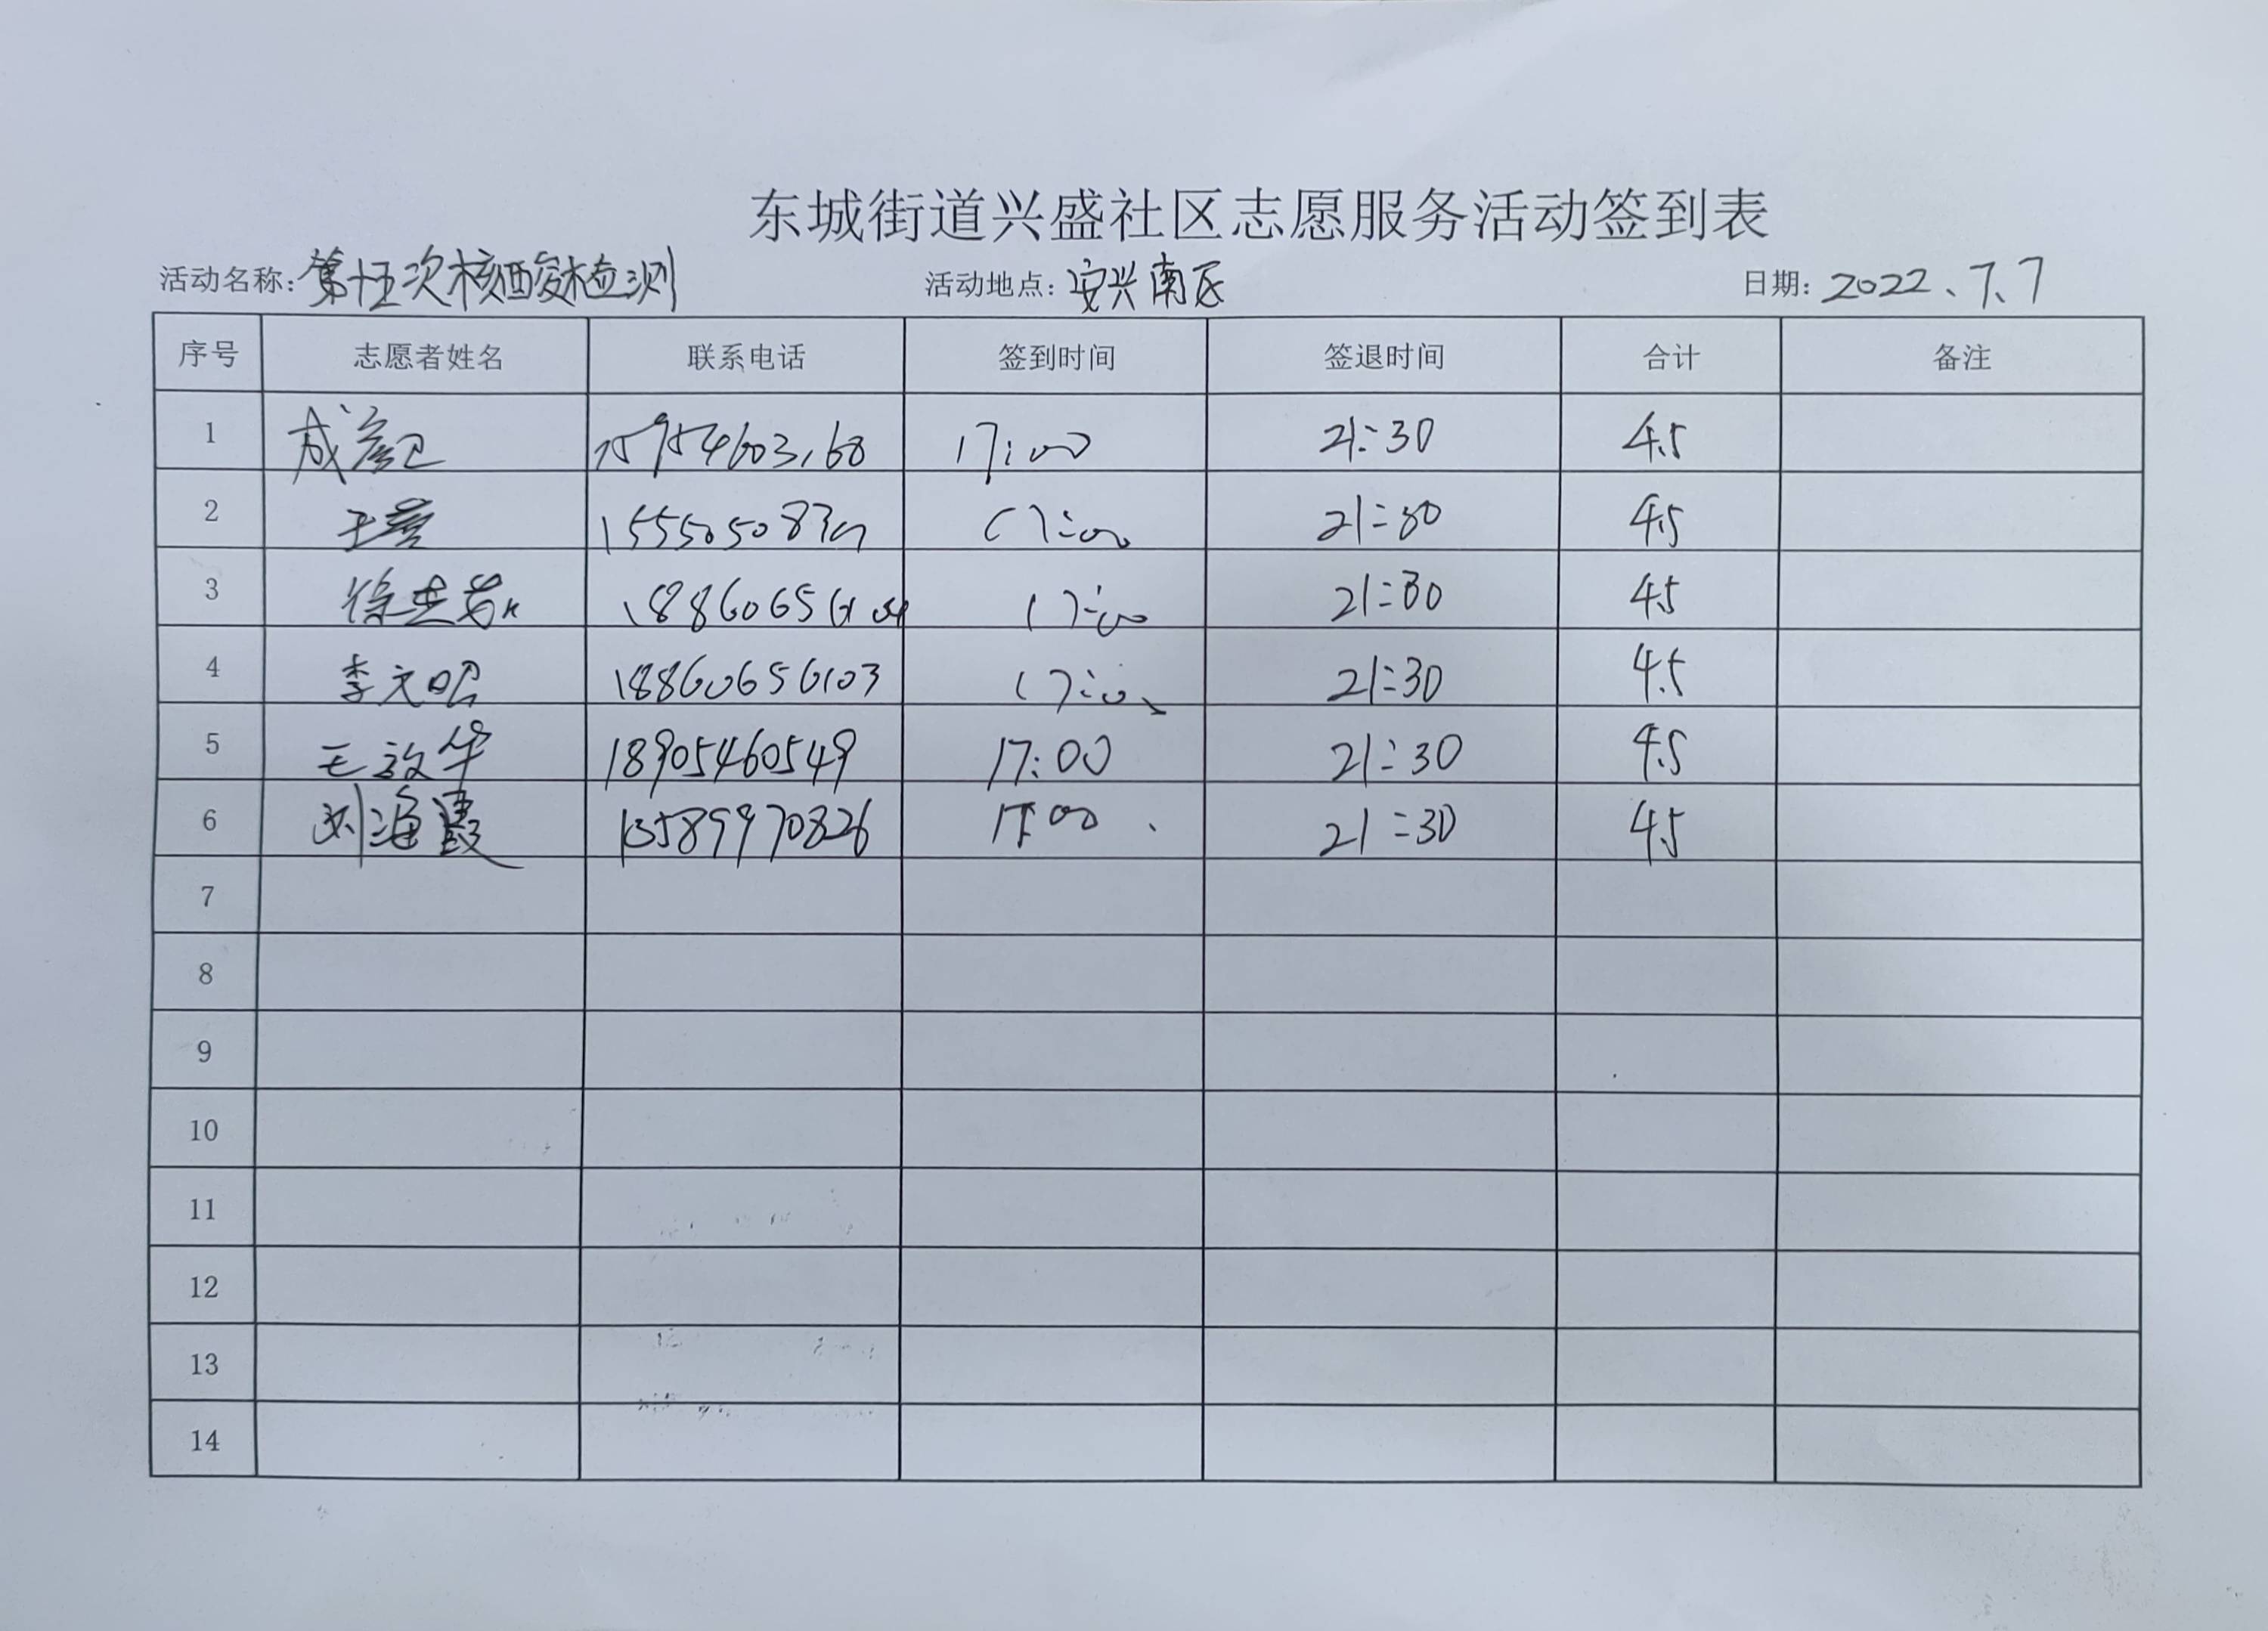 东城街道兴盛社区志愿服务活动签到表
活动名称:第十五次核酸检测 活动地点:安兴南区 日期:2022.7.7
序号 志愿者姓名 联系电话 签到时间 签退时间 合计 备注
1 15954603168 17:00 21:30 4.5
2 17:00 21:30 4.5
3 18860656104 17:00 21:30 4.5
4 李文昭 18860656103 17:00 21:30 4.5
5 王效华 18905460549 17:00 21:30 4.5
6 刘海霞 13589970826 17:00 21:30 4.5
7
8
9
10
11
12
13
14